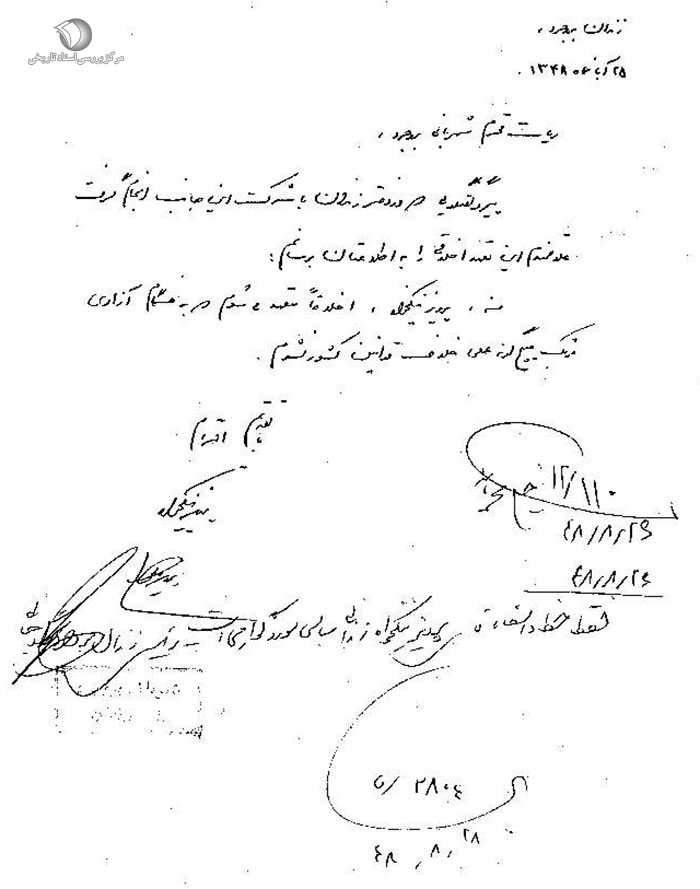 مرکز بررسی اسناد تاریخی
زندان بروجرد،
۲۵ آبانماه ۱۳۴۸.
ریاست محترم شهربانی بروجرد،
پیرو گفتگویی که در دفتر زندان با شرکت این جانب انجام گرفت
علاقمندم این تعهد اخلاقی را به اطلاعتان برسانم:
من، پرویز نیکخواه، اخلاقاً متعهد می‌شوم که به هنگام آزادی
مرتکب هیچگونه عملی خلاف قوانین کشور نشوم.
با تقدیم احترام
پرویز نیکخواه
۱۲/۱۱۰
۴۸/۸/۲۶
۴۸/۸/۲۶
فقط خط و امضاء پرویز نیکخواه زندانی سیاسی مورد گواهی است رئیس زندان
۵/ ۲۸۰۴
۴۸/۸/۲۸